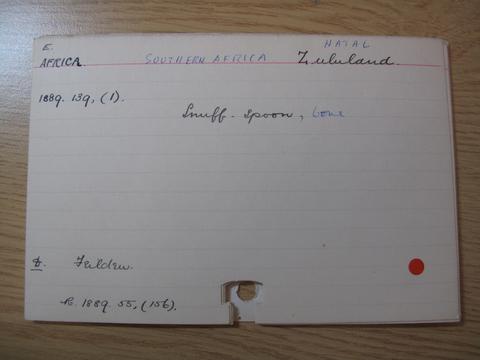 E.
NATAL
AFRICA. SOUTHERN AFRICA Zululand.
1889. 139, (1).
Snuff-spoon, bone
D. Feilden.
R. 1889. 55, (156).